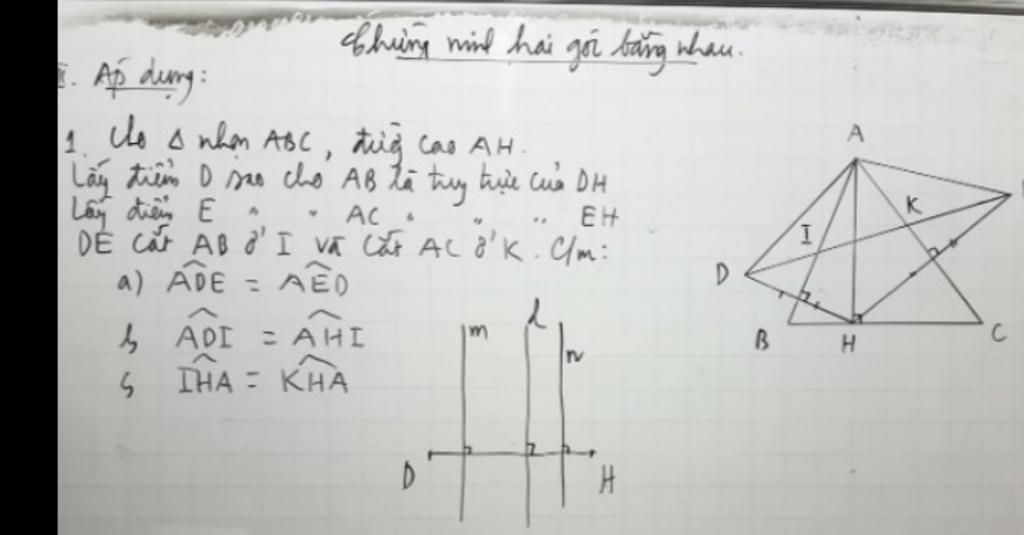 Chứng minh hai góc bằng nhau.
II. Áp dụng:
1. Cho Δ nhọn ABC, đường cao AH.
Lấy điểm D sao cho AB là trung trực của DH
Lấy điểm E " " AC " " " EH
DE cắt AB ở I và cắt AC ở K. C/m:
a) ADE = AED
b) ADI = AHI
c) IHA = KHA
m
d
n
D
H
A
K
I
D
B
H
C